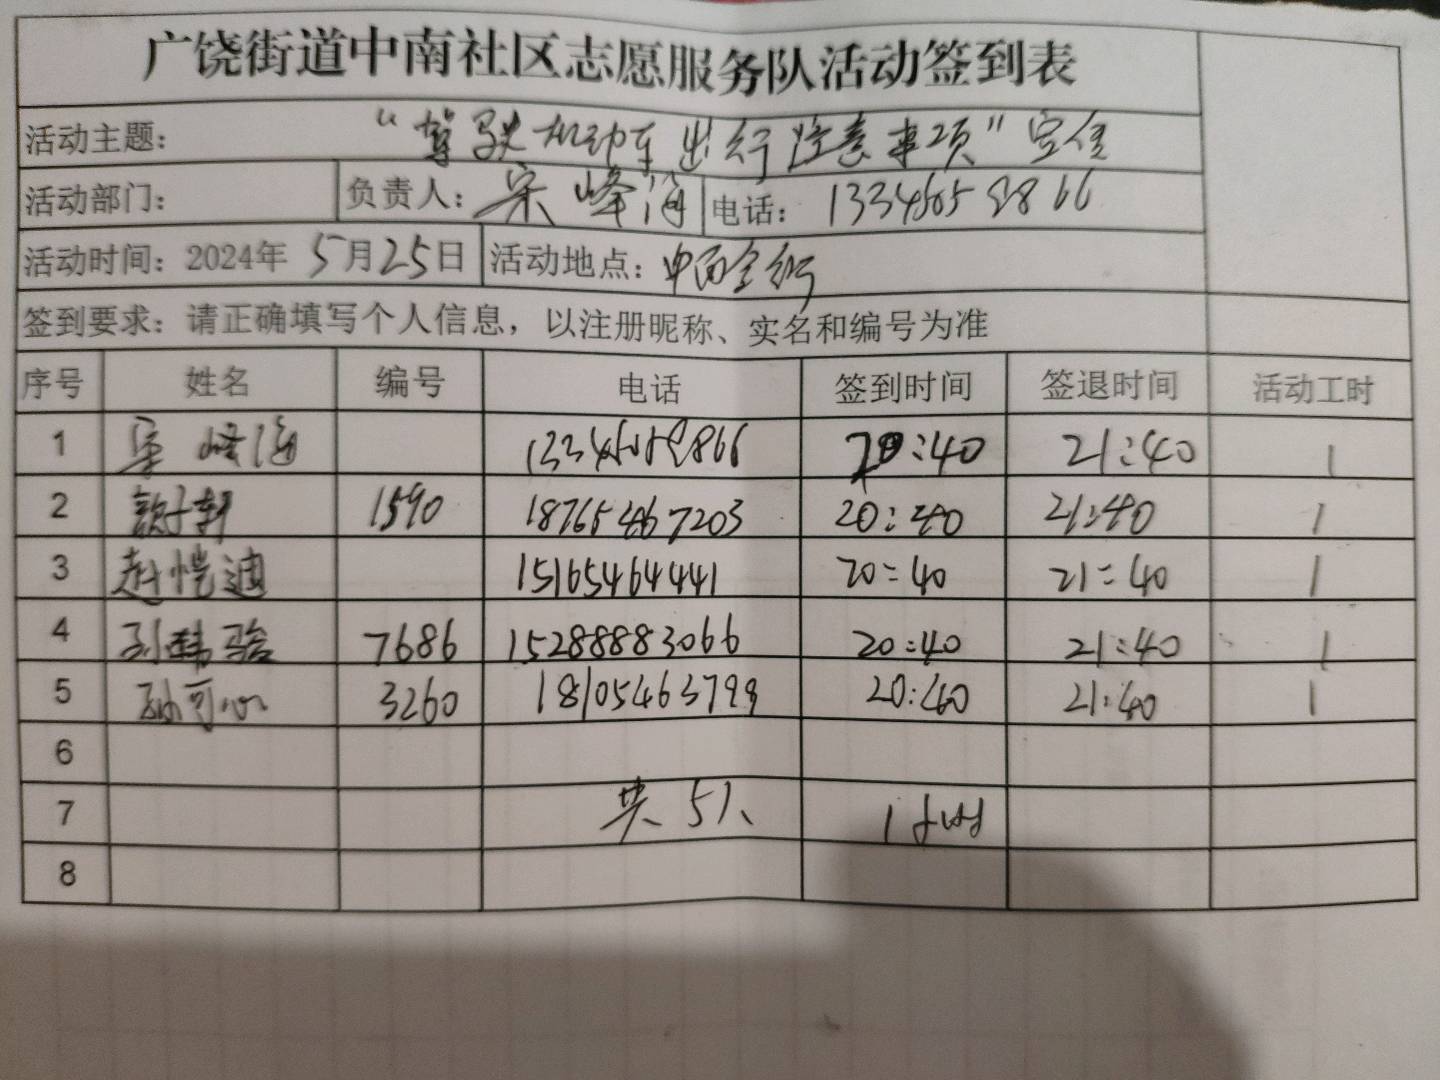 广饶街道中南社区志愿服务队活动签到表
活动主题： “驾驶机动车出行注意事项”宣传
活动部门： 负责人：宋峰海 电话：
活动时间：2024年 5月25日 活动地点：
签到要求：请正确填写个人信息，以注册昵称、实名和编号为准
序号 姓名 编号 电话 签到时间 签退时间 活动工时
1 宋峰海 20:40 21:40 1
2 1590 18765467203 20:40 21:40 1
3 赵恺迪 15165464441 20:40 21:40 1
4 7686 15288883066 20:40 21:40 1
5 孙可心 3260 20:40 21:40 1
6
7 共5人 1小时
8